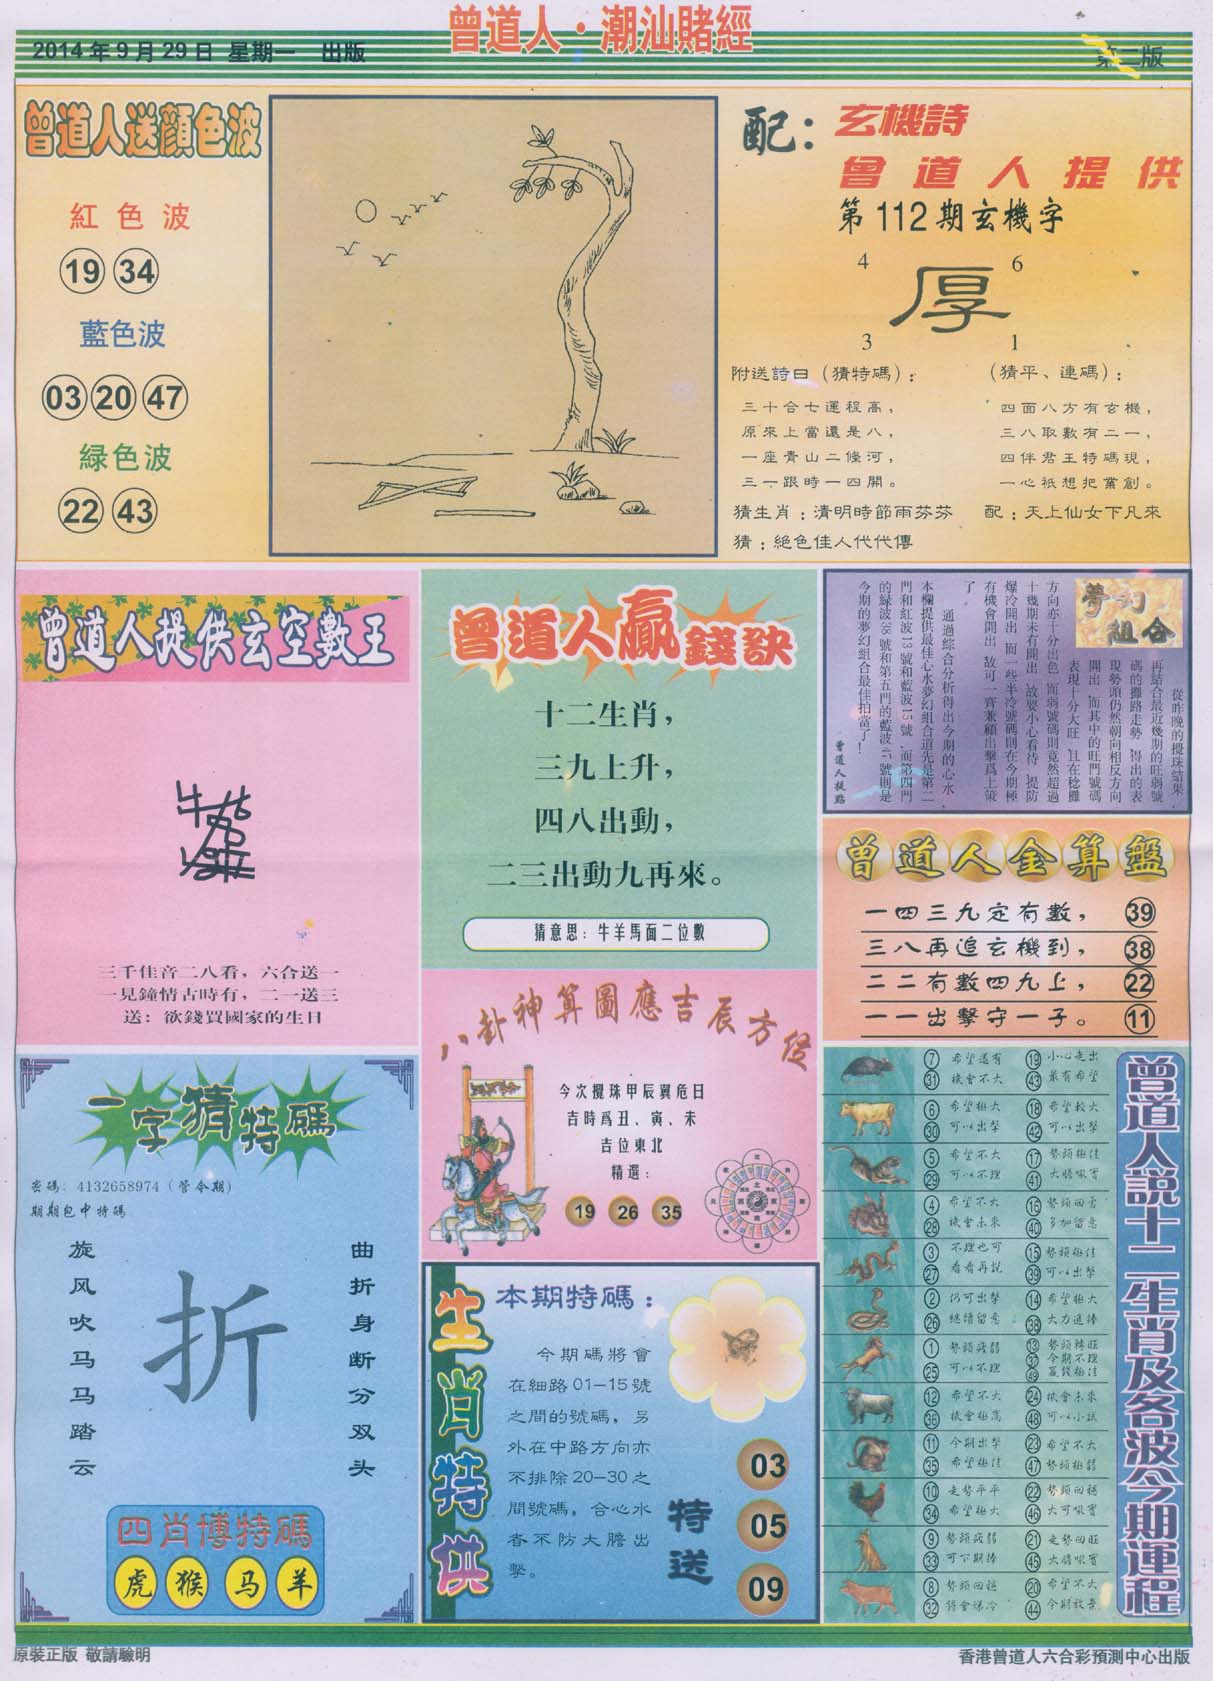 曾道人·潮汕賭經
2014年9月29日 星期一 出版
第二版
曾道人送顏色波
紅色波
19 34
藍色波
03 20 47
緑色波
22 43
配：玄機詩
曾道人提供
第112期玄機字
4 6
厚
3 1
附送詩曰（猜特碼）：
三十合七運程高，
原來上當還是八，
一座青山二條河，
三一跟時一四開。
（猜平、連碼）：
四面八方有玄機，
三八取數有二一，
四伴君王特碼現，
一心衹想把業創。
猜生肖：清明時節雨芬芬
配：天上仙女下凡來
猜：絕色佳人代代傳
曾道人提供玄空數王
三千佳音二八看，六合送一
一見鐘情古時有，二一送三
送：欲錢買國家的生日
曾道人贏錢訣
十二生肖，
三九上升，
四八出動，
二三出動九再來。
猜意思：牛羊馬面二位數
夢幻組合
從昨晚的攪珠結果，
再結合最近幾期的旺弱號
碼的攤路走勢，得出的表
現勢頭仍然朝向相反方向
開出，而其中的旺門號碼
表現十分大旺，且在稔攤
方向亦十分出色，而弱號碼則竟然超過
十幾期未有開出，故要小心看待，提防
爆冷開出，而一些半冷號碼則在今期極
有機會開出，故可一齊兼顧出擊爲上策
了。
通過綜合分析得出今期的心水，
本欄提供最佳心水夢幻組合道先是第二
門和紅波13號和藍波15號，而第四門
的緑波38號和第五門的藍波47號則是
今期的夢幻組合最佳拍當了！
曾道人提點
曾道人金算盤
一四三九定有數， 39
三八再追玄機到， 38
二二有數四九上， 22
一一出擊守一子。 11
八卦神算圖應吉辰方位
今次攪珠甲辰翼危日
吉時爲丑、寅、未
吉位東北
精選：
19 26 35
一字猜特碼
密碼：4132658974（管今期）
期期包中特碼
旋风吹马马踏云
折
曲折身断分双头
四肖博特碼
虎 猴 马 羊
生肖特供
本期特碼：
今期碼將會
在細路01-15號
之間的號碼，另
外在中路方向亦
不排除20-30之
間號碼，合心水
者不防大膽出
擊。
特送
03
05
09
曾道人説十二生肖及各波今期運程
7 希望還有 19 小心走出
31 機會不大 43 最有希望
6 希望極大 18 希望較大
30 可以出擊 42 可以出擊
5 希望不大 17 勢頭極佳
29 可以不理 41 大膽吼實
4 希望不大 16 勢頭回雪
28 機會未來 40 多加留意
3 不理也可 15 勢頭極佳
27 看看再説 39 可以出擊
2 仍可出擊 14 希望極大
26 繼續留意 38 大力進捧
1 勢頭疲弱 13 勢頭轉旺
25 可以不理 37 今期不理
49 贏錢極佳
12 希望不大 24 機會未來
36 機會極高 48 可以小試
11 今期出擊 23 希望不大
35 希望極佳 47 勢頭極弱
10 走勢平平 22 勢頭回穩
34 希望極大 46 大可吼實
9 勢頭疲弱 21 走勢回旺
33 可下期捧 45 大膽吼實
8 勢頭回穩 20 希望不大
32 得會爆冷 44 今期放棄
原裝正版 敬請驗明
香港曾道人六合彩預測中心出版